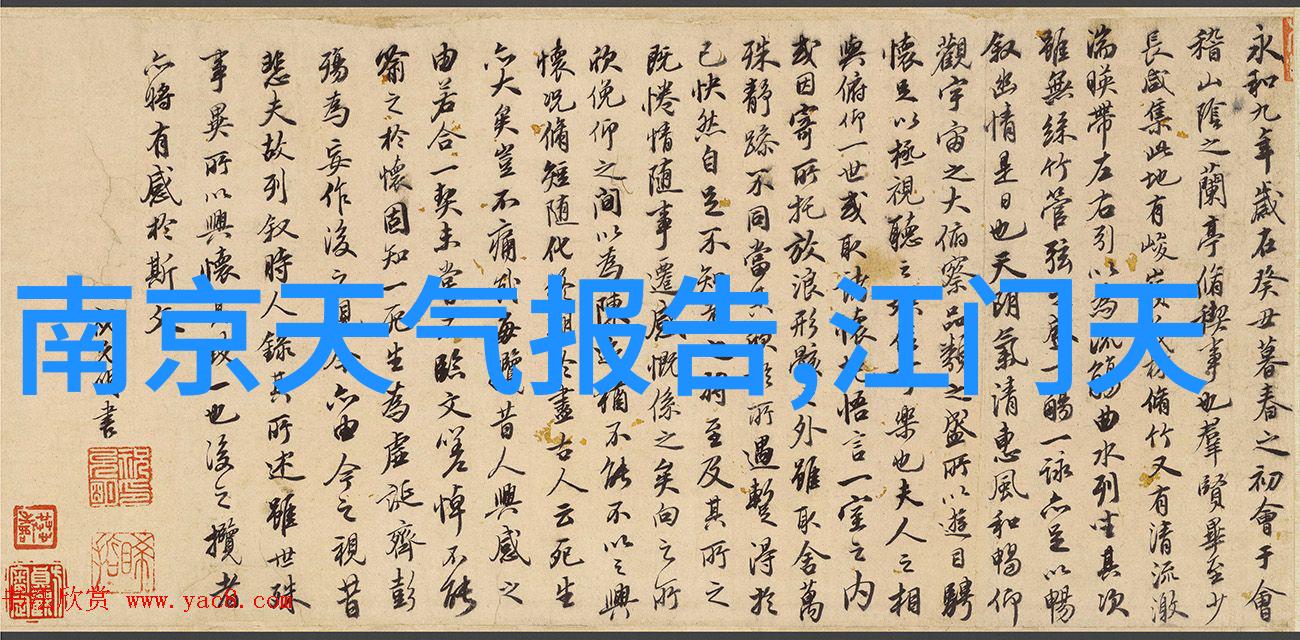 南京天气报告,江门天
永和九年歲在癸丑暮春之初會于會
稽山陰之蘭亭脩禊事也羣賢畢至少
長咸集此地有峻嶺茂林脩竹又有清流激
湍暎帶左右引以為流觴曲水列坐其次
雖無絲竹管弦之盛一觴一詠亦足以暢
叙幽情是日也天朗氣清惠風和暢仰
觀宇宙之大俯察品類之盛所以遊目騁
懷足以極視聽之娛信可樂也夫人之相
與俯仰一世或取諸懷抱悟言一室之內
或因寄所托放浪形骸之外雖取舍萬
殊靜躁不同當其欣於所遇暫得於
已快然自足不知老之將至及其所之
既惓情隨事遷感慨係之矣向之所
欣俛仰之間以為陳迹猶不能不以之興
懷況脩短隨化終期於盡古人云死生
亦大矣豈不痛哉每覽昔人興感之
由若合一契未嘗不臨文嗟悼不能
喻之於懷固知一死生為虛誕齊彭
殤為妄作後之視今亦由今之視昔
悲夫故列叙時人錄其所述雖世殊
事異所以興懷其致一也後之攬者
亦將有感於斯文
書
欣赏 www.yac8.com